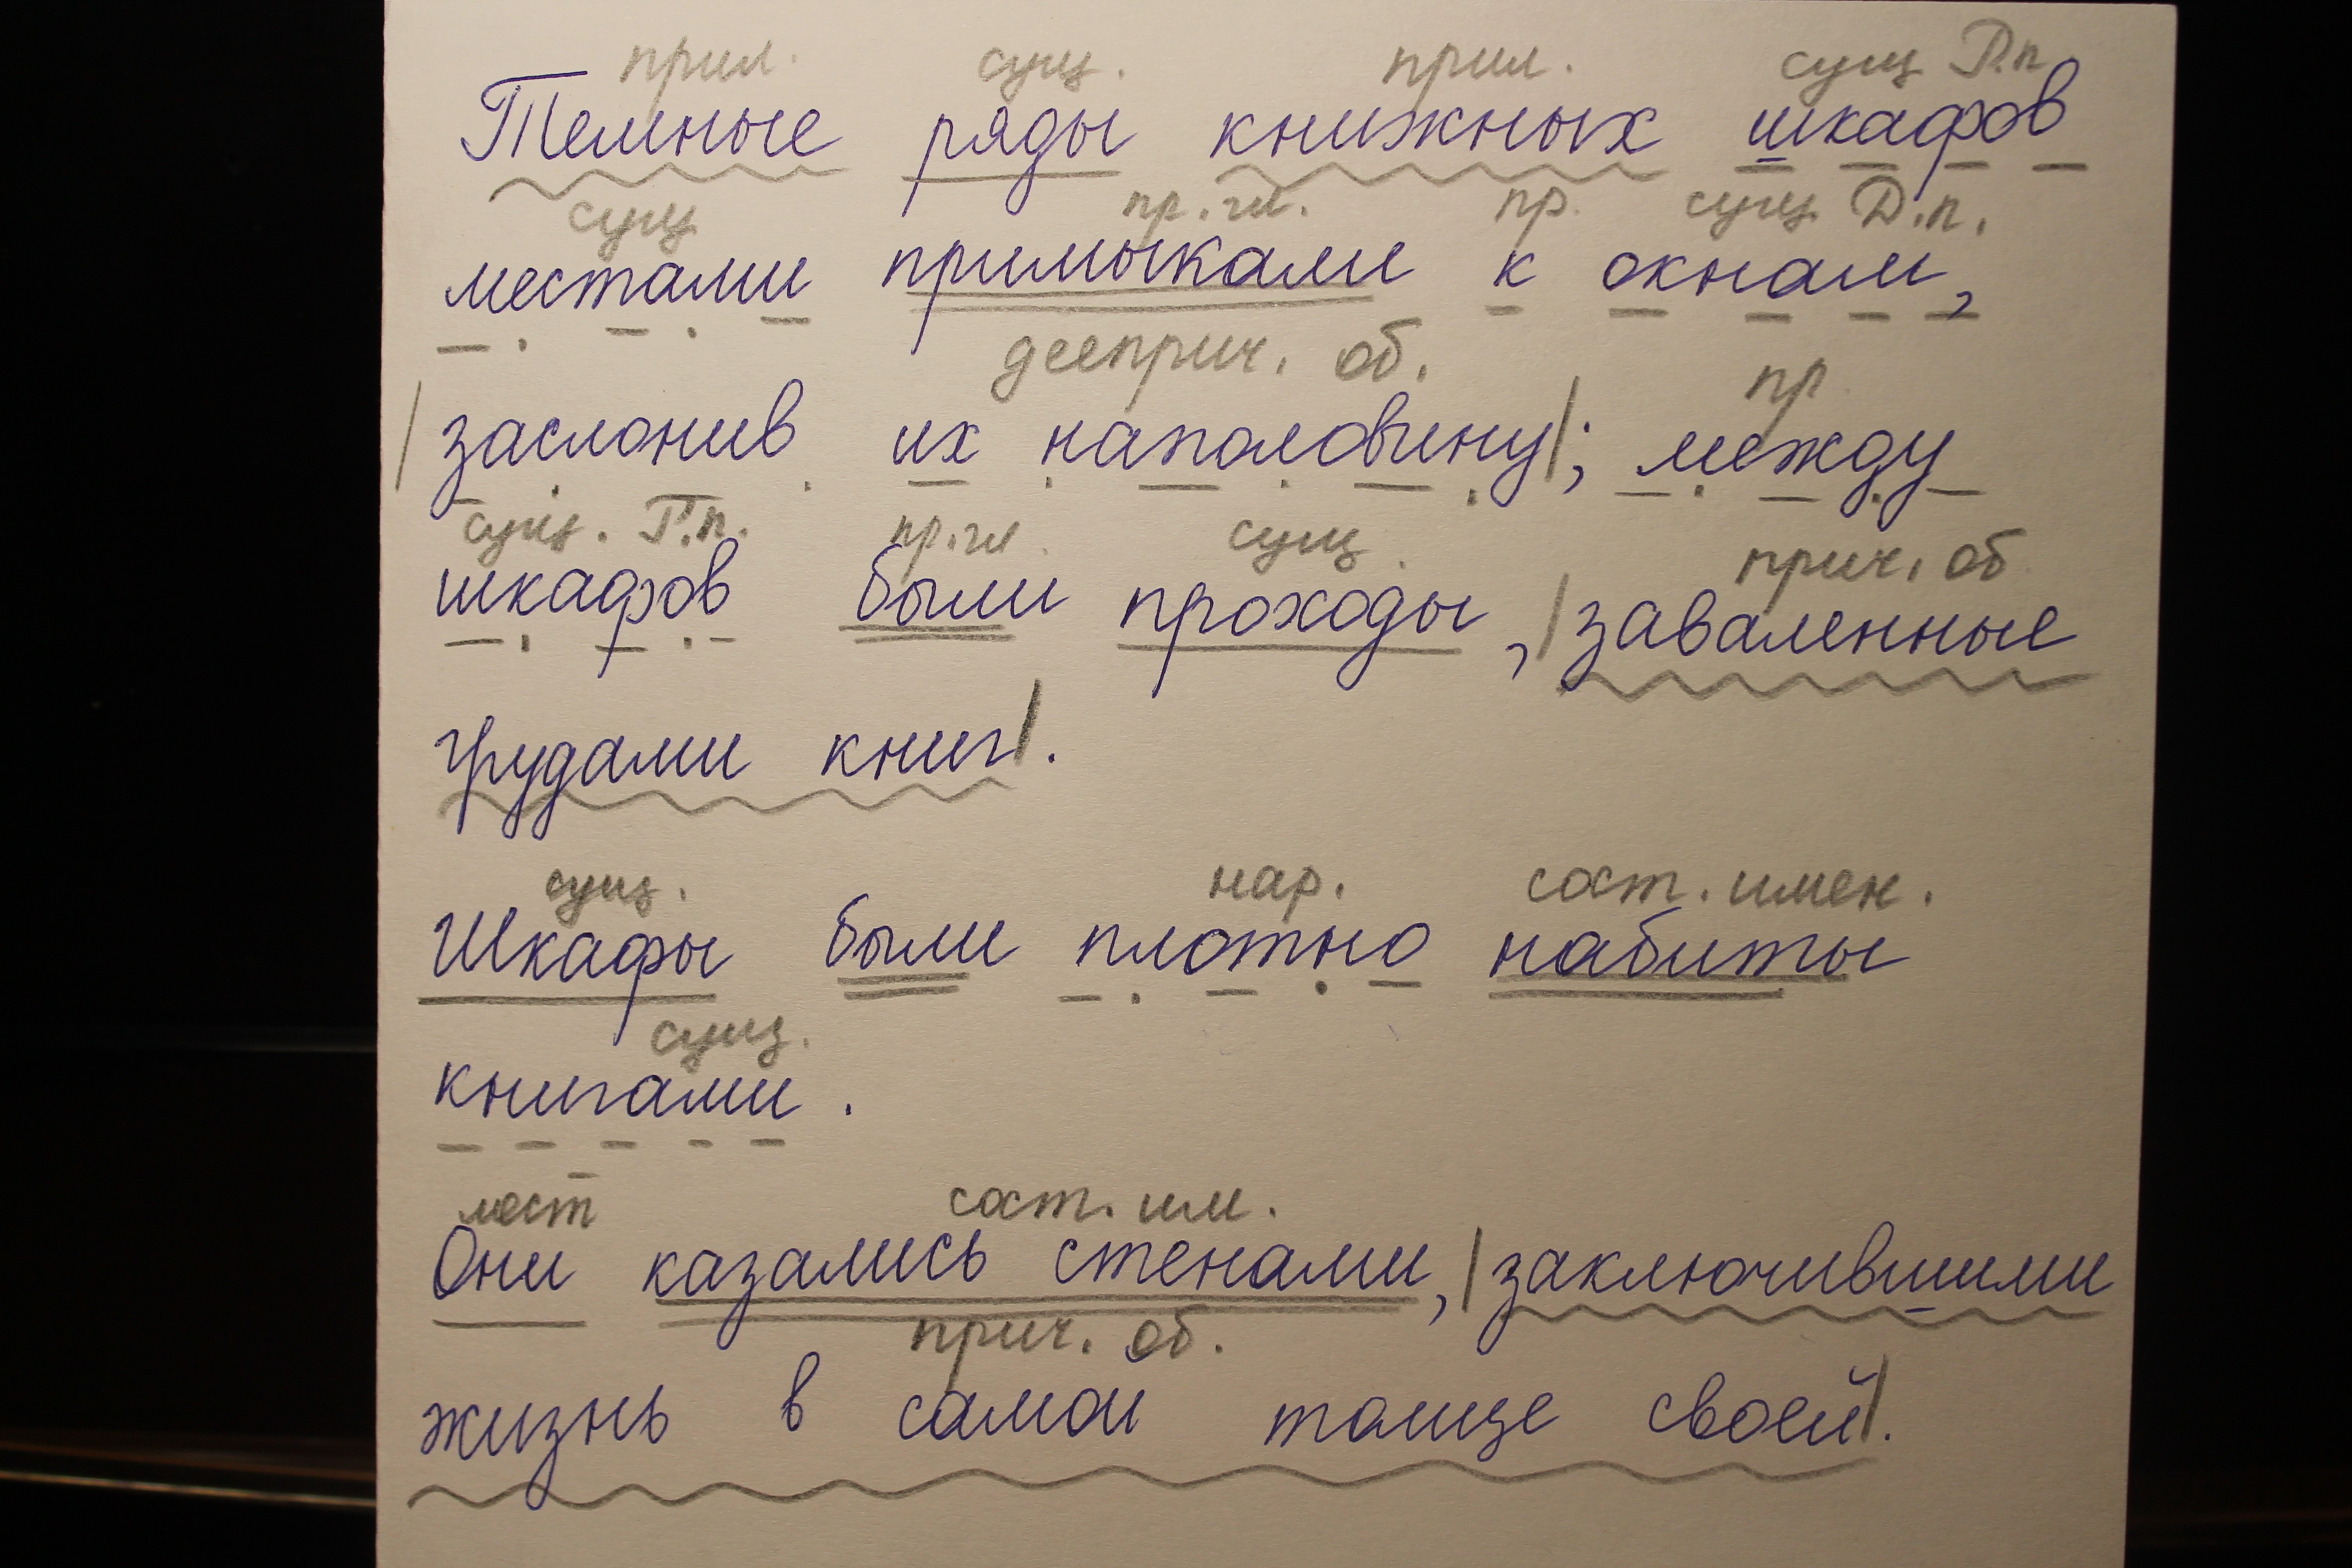 прил. сущ. прил. сущ Р.п
Темные ряды книжных шкафов
сущ пр.гл. пр. сущ. Д.п.
местами примыкали к окнам,
дееприч. об. пр
|заслонив их наполовину|; между
сущ. Р.п. пр.гл. сущ. прич. об
шкафов были проходы, |заваленные
грудами книг|.
сущ. нар. сост. имен.
Шкафы были плотно набиты
сущ.
книгами.
мест сост. им.
Они казались стенами, |заключившими
прич. об.
жизнь в самой толще своей|.